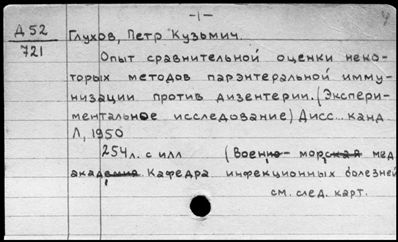 -1-
4
Д 52
721
Глухов, Петр Кузьмич.
Опыт сравнительной оценки неко-
торых методов парэнтеральной имму-
низации против дизентерии. (Экспери-
ментальное исследование) Дисс. канд
Л, 1950
254 л. с илл (Военно-морская мед.
академия. Кафедра инфекционных болезней
см. след. карт.